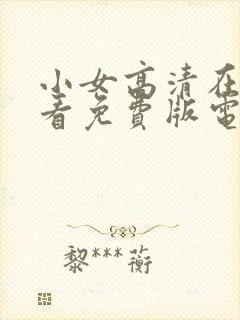 小女高清在
看免费版電
黎***蘅